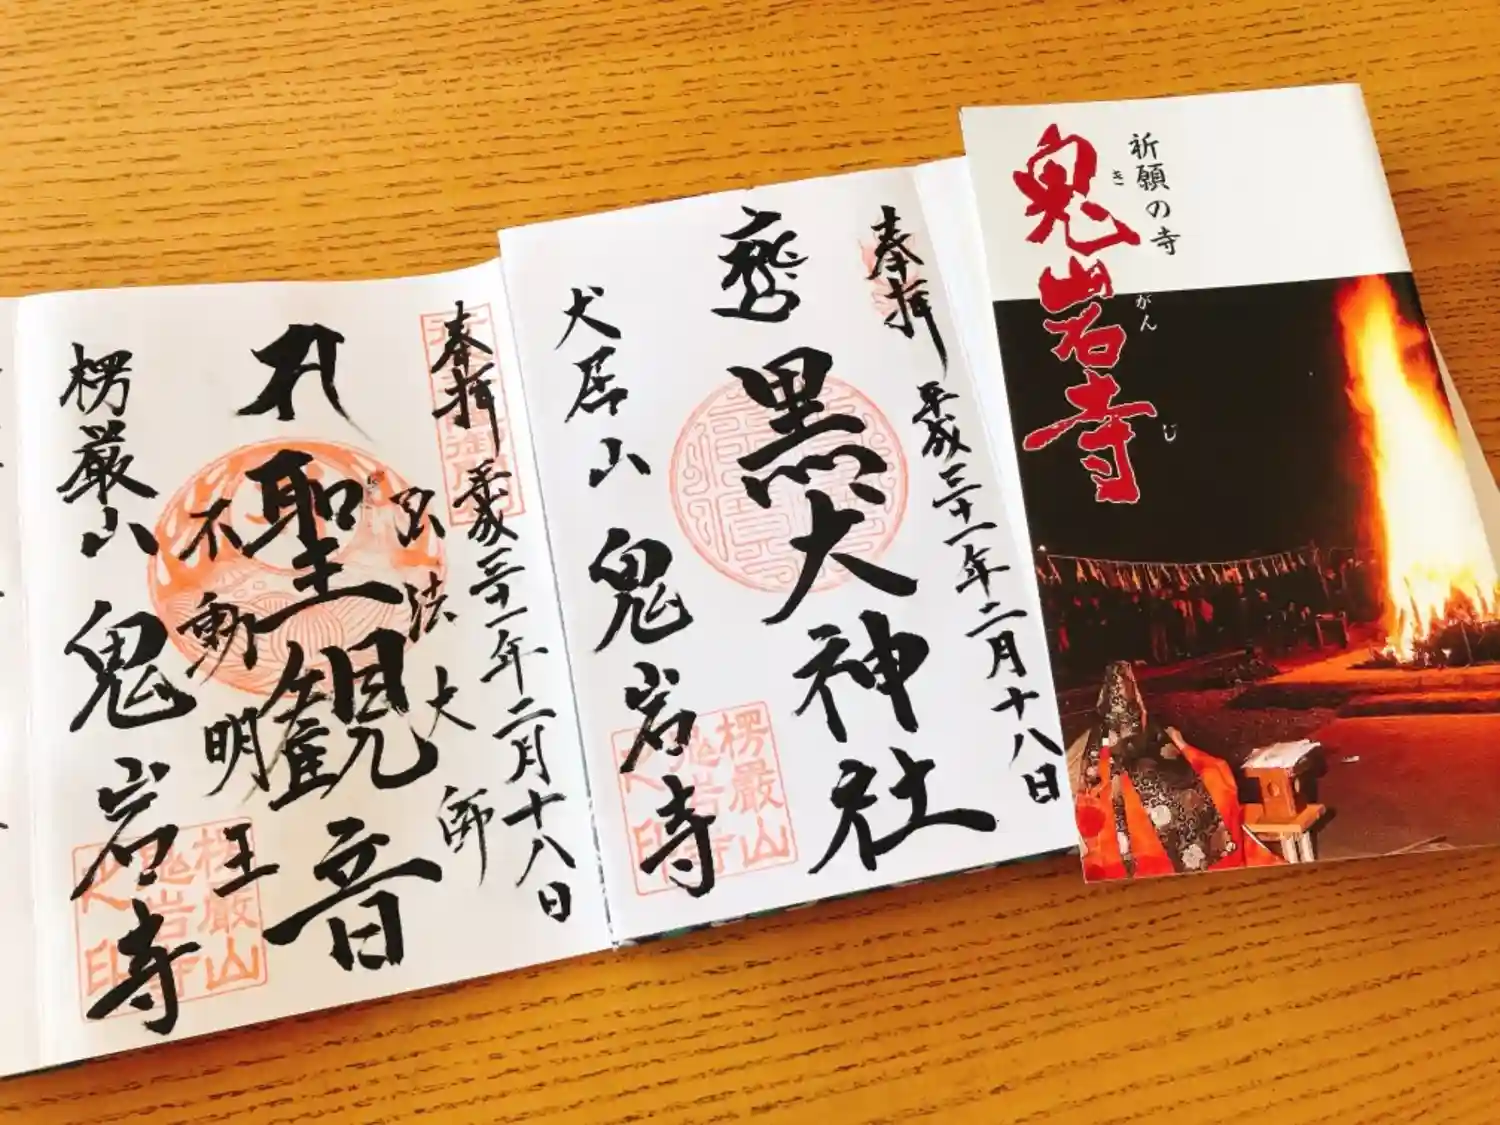 奉拝
平成三十一年二月十八日
聖観音
弘法大師
不動明王
楞厳山
鬼岩寺
楞厳山
鬼岩寺
之印
奉拝
平成三十一年二月十八日
黒犬神社
犬居山
鬼岩寺
楞厳山
鬼岩寺
之印
祈願の寺
鬼岩寺
き
がん
じ